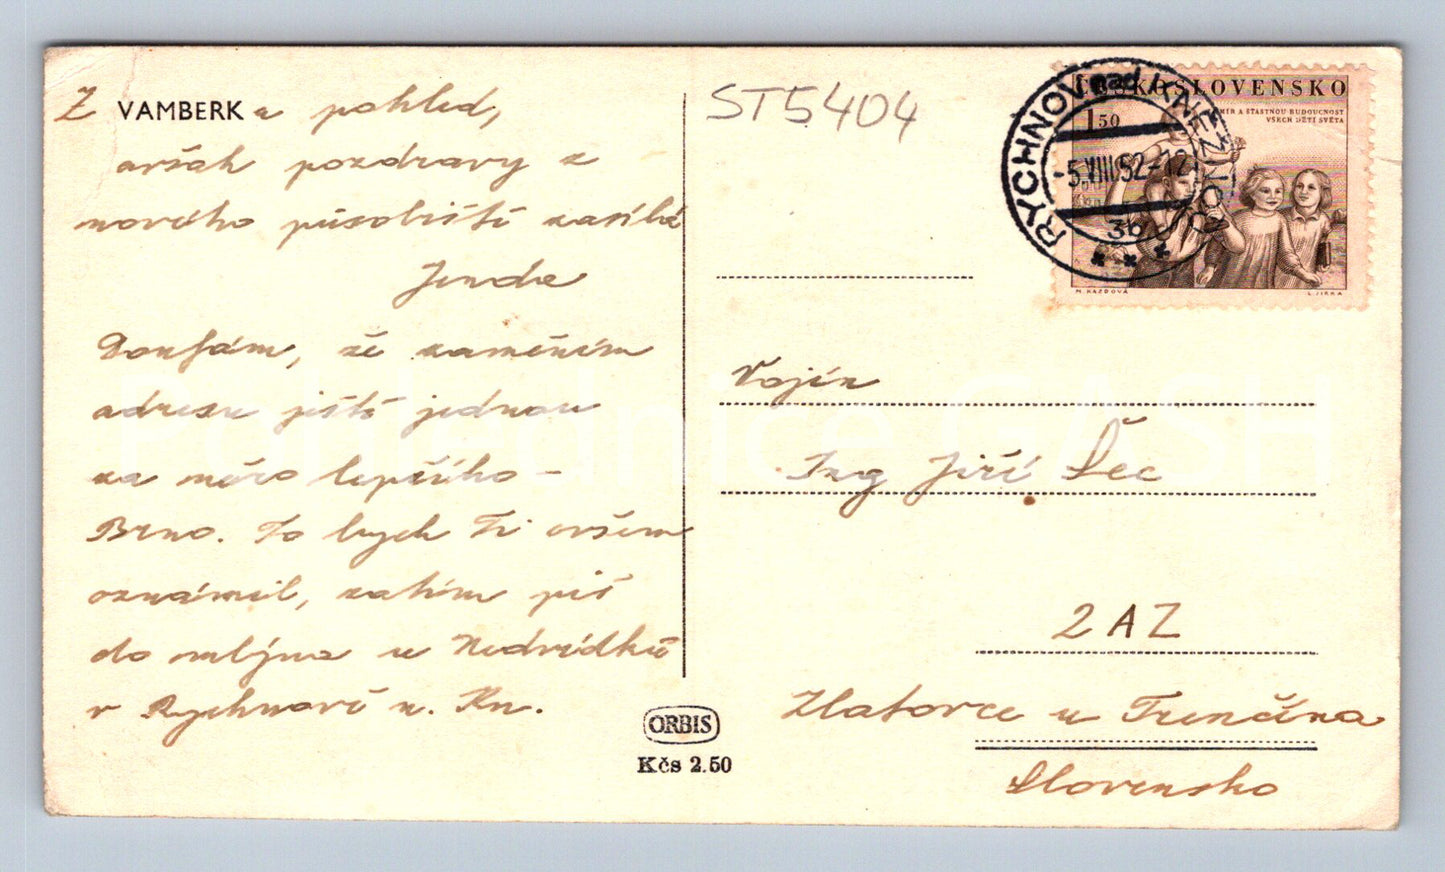 Z VAMBERKu pohled,
avšak pozdravy z
nového působiště zasílá
Jenda
Doufám, že zaměním
adresu ještě jednou
za něco lepšího -
Brno. To bych Ti ovšem
oznámil, zatím piš
do mlýna u Nedvídků
v Rychnově n. Kn.
ORBIS
Kčs 2.50
ST5404
ČESKOSLOVENSKO
MÍR A ŠŤASTNOU BUDOUCNOST
VŠECH DĚTÍ SVĚTA
1 50
RYCHNOV nad KNĚŽNOU
-5.VIII.52-12
3b
L. JIRKA
Vojín
Ing Jiří Šec
2 AZ
Zlatovce u Trenčína
Slovensko
Pohlednice GASH